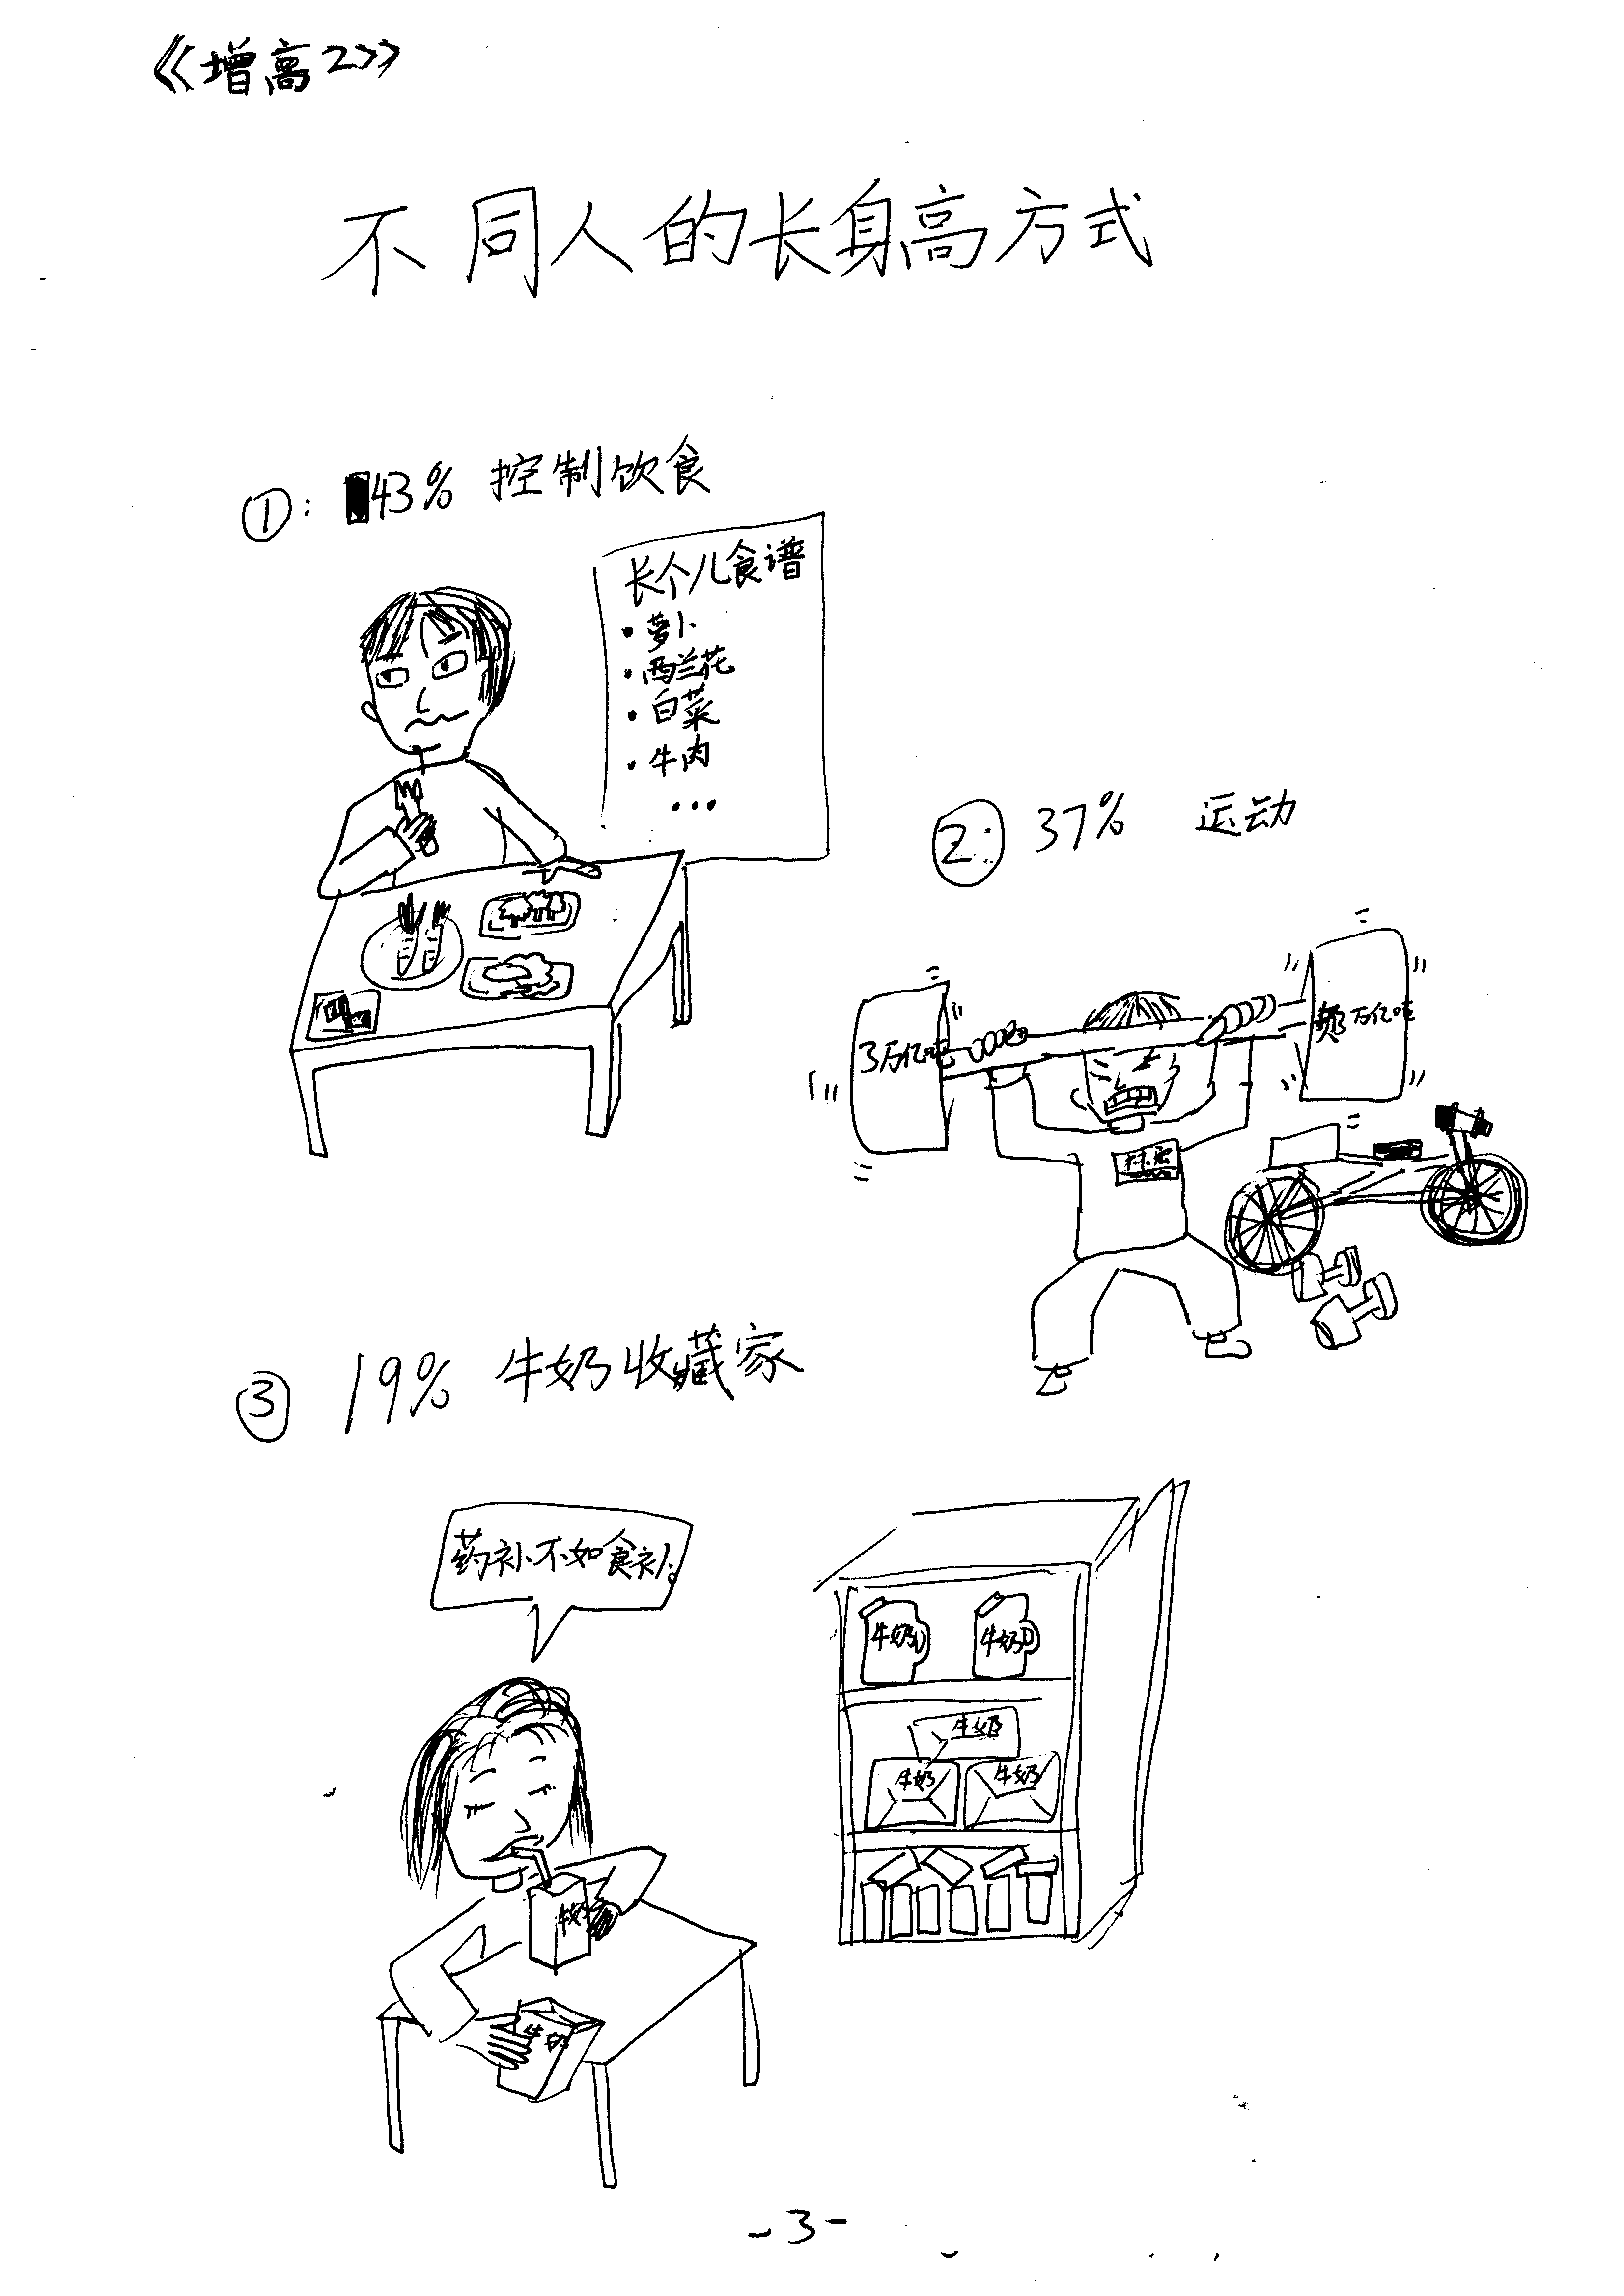 《增高2》
不同人的长身高方式
①: 43% 控制饮食
长个儿食谱
• 萝卜
• 西兰花
• 白菜
• 牛肉
...
②: 37% 运动
3万亿吨
3万亿吨
③ 19% 牛奶收藏家
药补不如食补。
牛奶
牛奶
牛奶
牛奶
牛奶
牛奶
牛奶
-3-